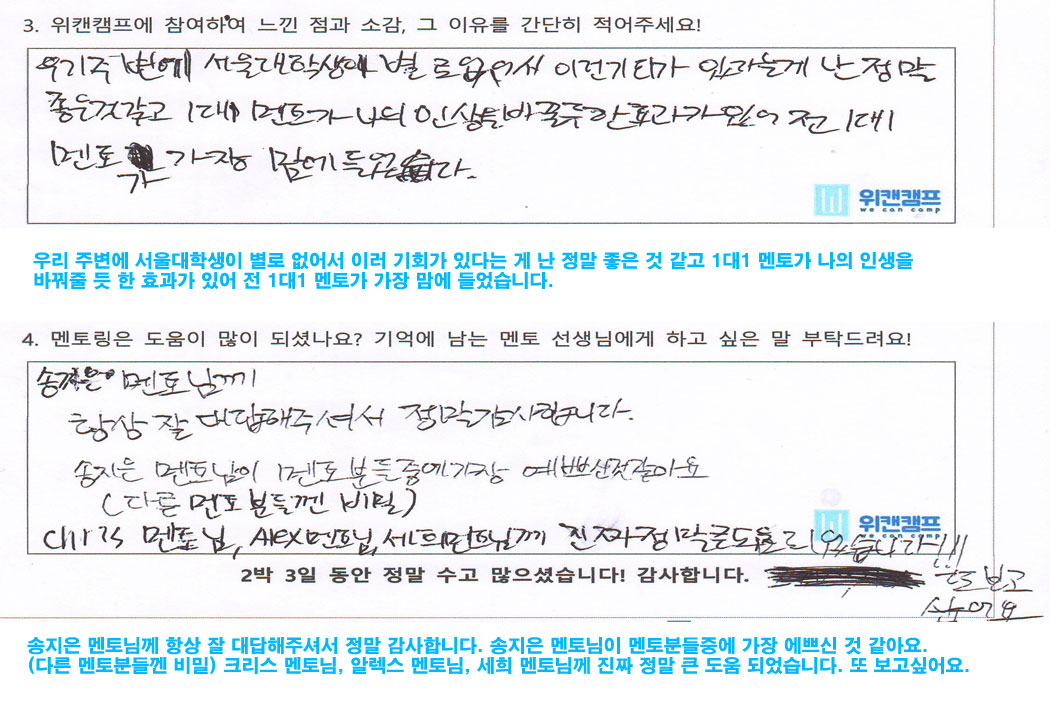 3. 위캔캠프에 참여하여 느낀 점과 소감, 그 이유를 간단히 적어주세요!
우리주변에 서울대학생이 별로없어서 이런기회가 있다는게 난 정말
좋은것같고 1대1 멘토가 나의 인생을바꿀주 한효과가있어 전 1대1
멘토가 가장 맘에들었습니다.
위캔캠프
we can camp
우리 주변에 서울대학생이 별로 없어서 이러 기회가 있다는 게 난 정말 좋은 것 같고 1대1 멘토가 나의 인생을
바꿔줄 듯 한 효과가 있어 전 1대1 멘토가 가장 맘에 들었습니다.
4. 멘토링은 도움이 많이 되셨나요? 기억에 남는 멘토 선생님에게 하고 싶은 말 부탁드려요!
송지은 멘토님께
항상 잘 대답해주셔서 정말감사합니다.
송지은 멘토님이 멘토분들중에가장 예쁘신것같아요
(다른 멘토분들껜 비밀)
Chris 멘토님, ALEX멘토님, 세희멘토님께 진짜정말큰도움 되었습니다!!!
위캔캠프
2박 3일 동안 정말 수고 많으셨습니다! 감사합니다.
또 보고
싶어요
송지은 멘토님께 항상 잘 대답해주셔서 정말 감사합니다. 송지은 멘토님이 멘토분들중에 가장 에쁘신 것 같아요.
(다른 멘토분들껜 비밀) 크리스 멘토님, 알렉스 멘토님, 세희 멘토님께 진짜 정말 큰 도움 되었습니다. 또 보고싶어요.